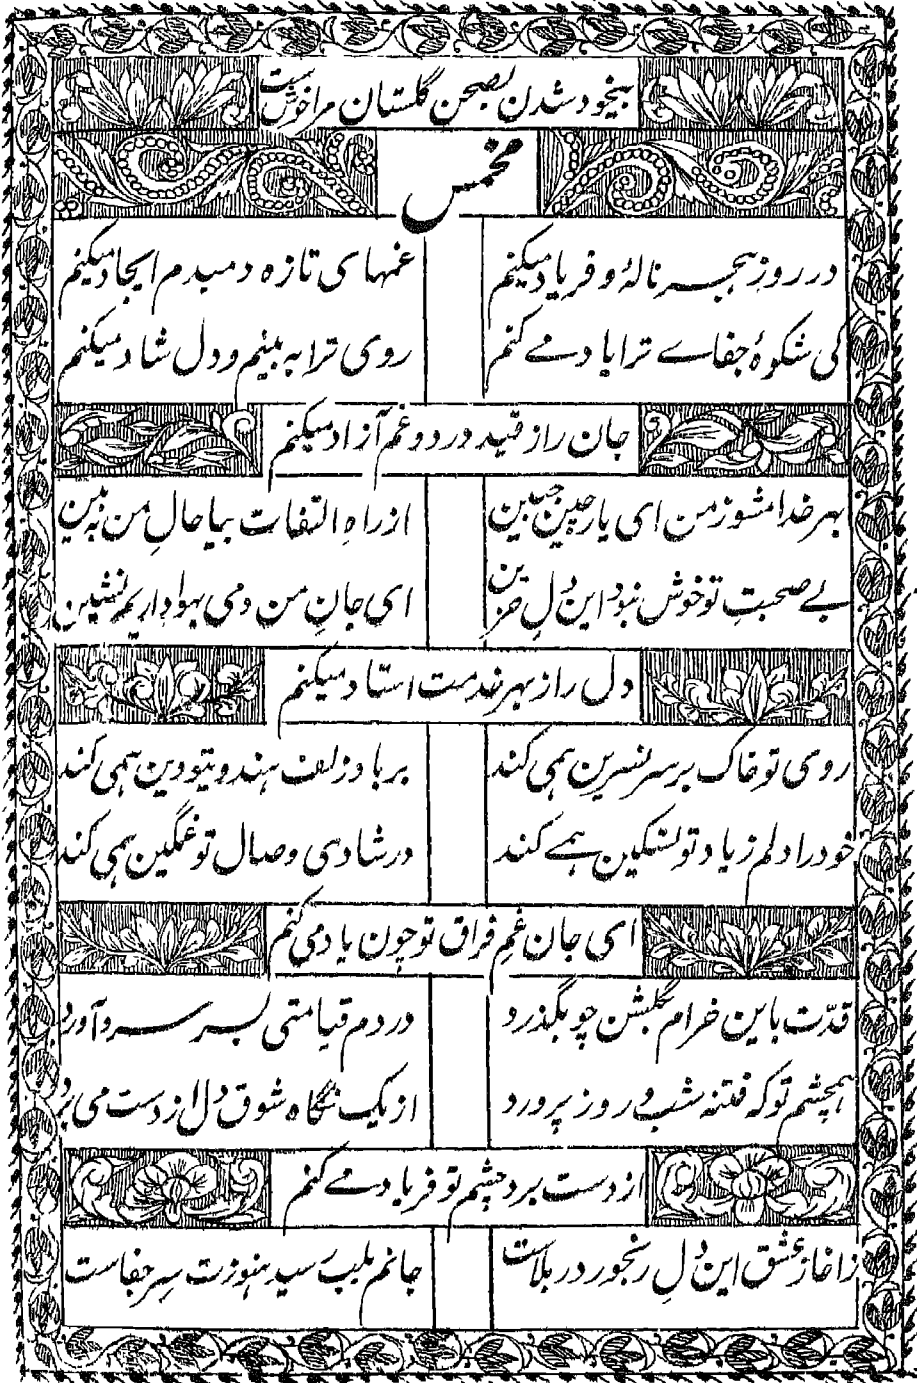 بیخود شدن بصحن گلستان مرا خوش است
مخمس
در روز هجر نالهٔ و فریاد میکنم
غمهای تازه دمبدم ایجاد میکنم
کی شکوهٔ جفاے ترا یاد مے کنم
روی ترا به بینم و دل شاد میکنم
جان را ز قید درد و غم آزاد میکنم
بهر خدا مشو ز من ای یار چین جبین
از راهِ التفات بیا حالِ من به بین
بے صحبتِ تو خوش نبود این دلِ حزین
ای جانِ من دمی بهواداریم نشین
دل را ز بهر خدمت استاد میکنم
روی تو خاک بر سر نسرین همی کند
بر باد زلف هندویتو دین همی کند
خود را دلم ز یاد تو تسکین همے کند
در شادی وصال تو غمگین همی کند
ای جان غمِ فراق تو چون یاد می کنم
قدّت باین خرام بگلشن چو بگذرد
در دم قیامتی بسر سرو آورد
چشم تو که فتنه شب و روز پرورد
از یک نگاه شوق دل از دست می برد
از دست برد چشم تو فریاد مے کنم
ز آغاز عشق این دلِ رنجور در بلاست
جانم بلب رسید هنوزت سرِ جفاست